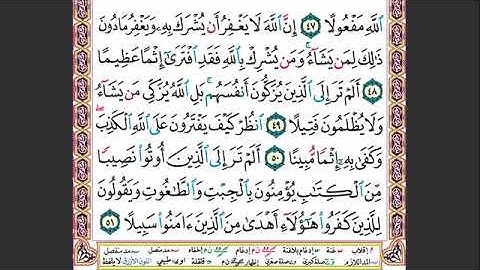 اللَّهِ مَفْعُولًا ٤٧ إِنَّ اللَّهَ لَا يَغْفِرُ أَن يُشْرَكَ بِهِ وَيَغْفِرُ مَا دُونَ
ذَٰلِكَ لِمَن يَشَاءُ ۚ وَمَن يُشْرِكْ بِاللَّهِ فَقَدِ افْتَرَىٰ إِثْمًا عَظِيمًا
٤٨ أَلَمْ تَرَ إِلَى الَّذِينَ يُزَكُّونَ أَنفُسَهُم ۚ بَلِ اللَّهُ يُزَكِّي مَن يَشَاءُ
وَلَا يُظْلَمُونَ فَتِيلًا ٤٩ انظُرْ كَيْفَ يَفْتَرُونَ عَلَى اللَّهِ الْكَذِبَ ۖ
وَكَفَىٰ بِهِ إِثْمًا مُّبِينًا ٥٠ أَلَمْ تَرَ إِلَى الَّذِينَ أُوتُوا نَصِيبًا
مِّنَ الْكِتَابِ يُؤْمِنُونَ بِالْجِبْتِ وَالطَّاغُوتِ وَيَقُولُونَ
لِلَّذِينَ كَفَرُوا هَٰؤُلَاءِ أَهْدَىٰ مِنَ الَّذِينَ ءَامَنُوا سَبِيلًا ٥١